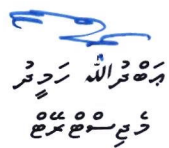 ޢަބްދުﷲ ހަމީދު
މެޖިސްޓްރޭޓް